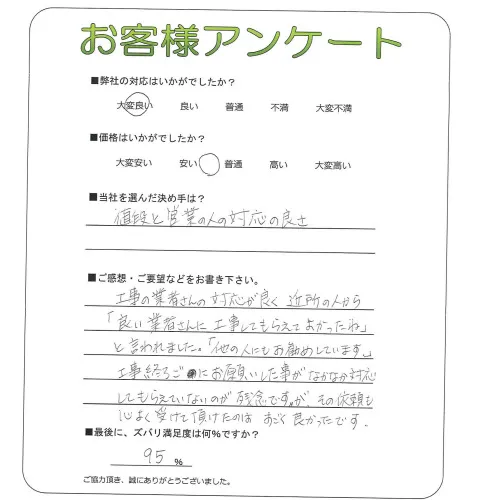 お客様アンケート
■弊社の対応はいかがでしたか?
大変良い 良い 普通 不満 大変不満
■価格はいかがでしたか?
大変安い 安い 普通 高い 大変高い
■当社を選んだ決め手は?
値段と営業の人の対応の良さ
■ご感想・ご要望などをお書き下さい。
工事の業者さんの対応が良く 近所の人から
「良い業者さんに工事してもらえてよかったね」
と言われました。「他の人にもお勧めしています。」
工事終ろご にお願いした事がなかなか対応
してもらえていないのが残念ですが、その依頼も
心よく受けて頂けたのは すごく良かったです.
■最後に、ズバリ満足度は何%ですか?
95 %
ご協力頂き、誠にありがとうございました。